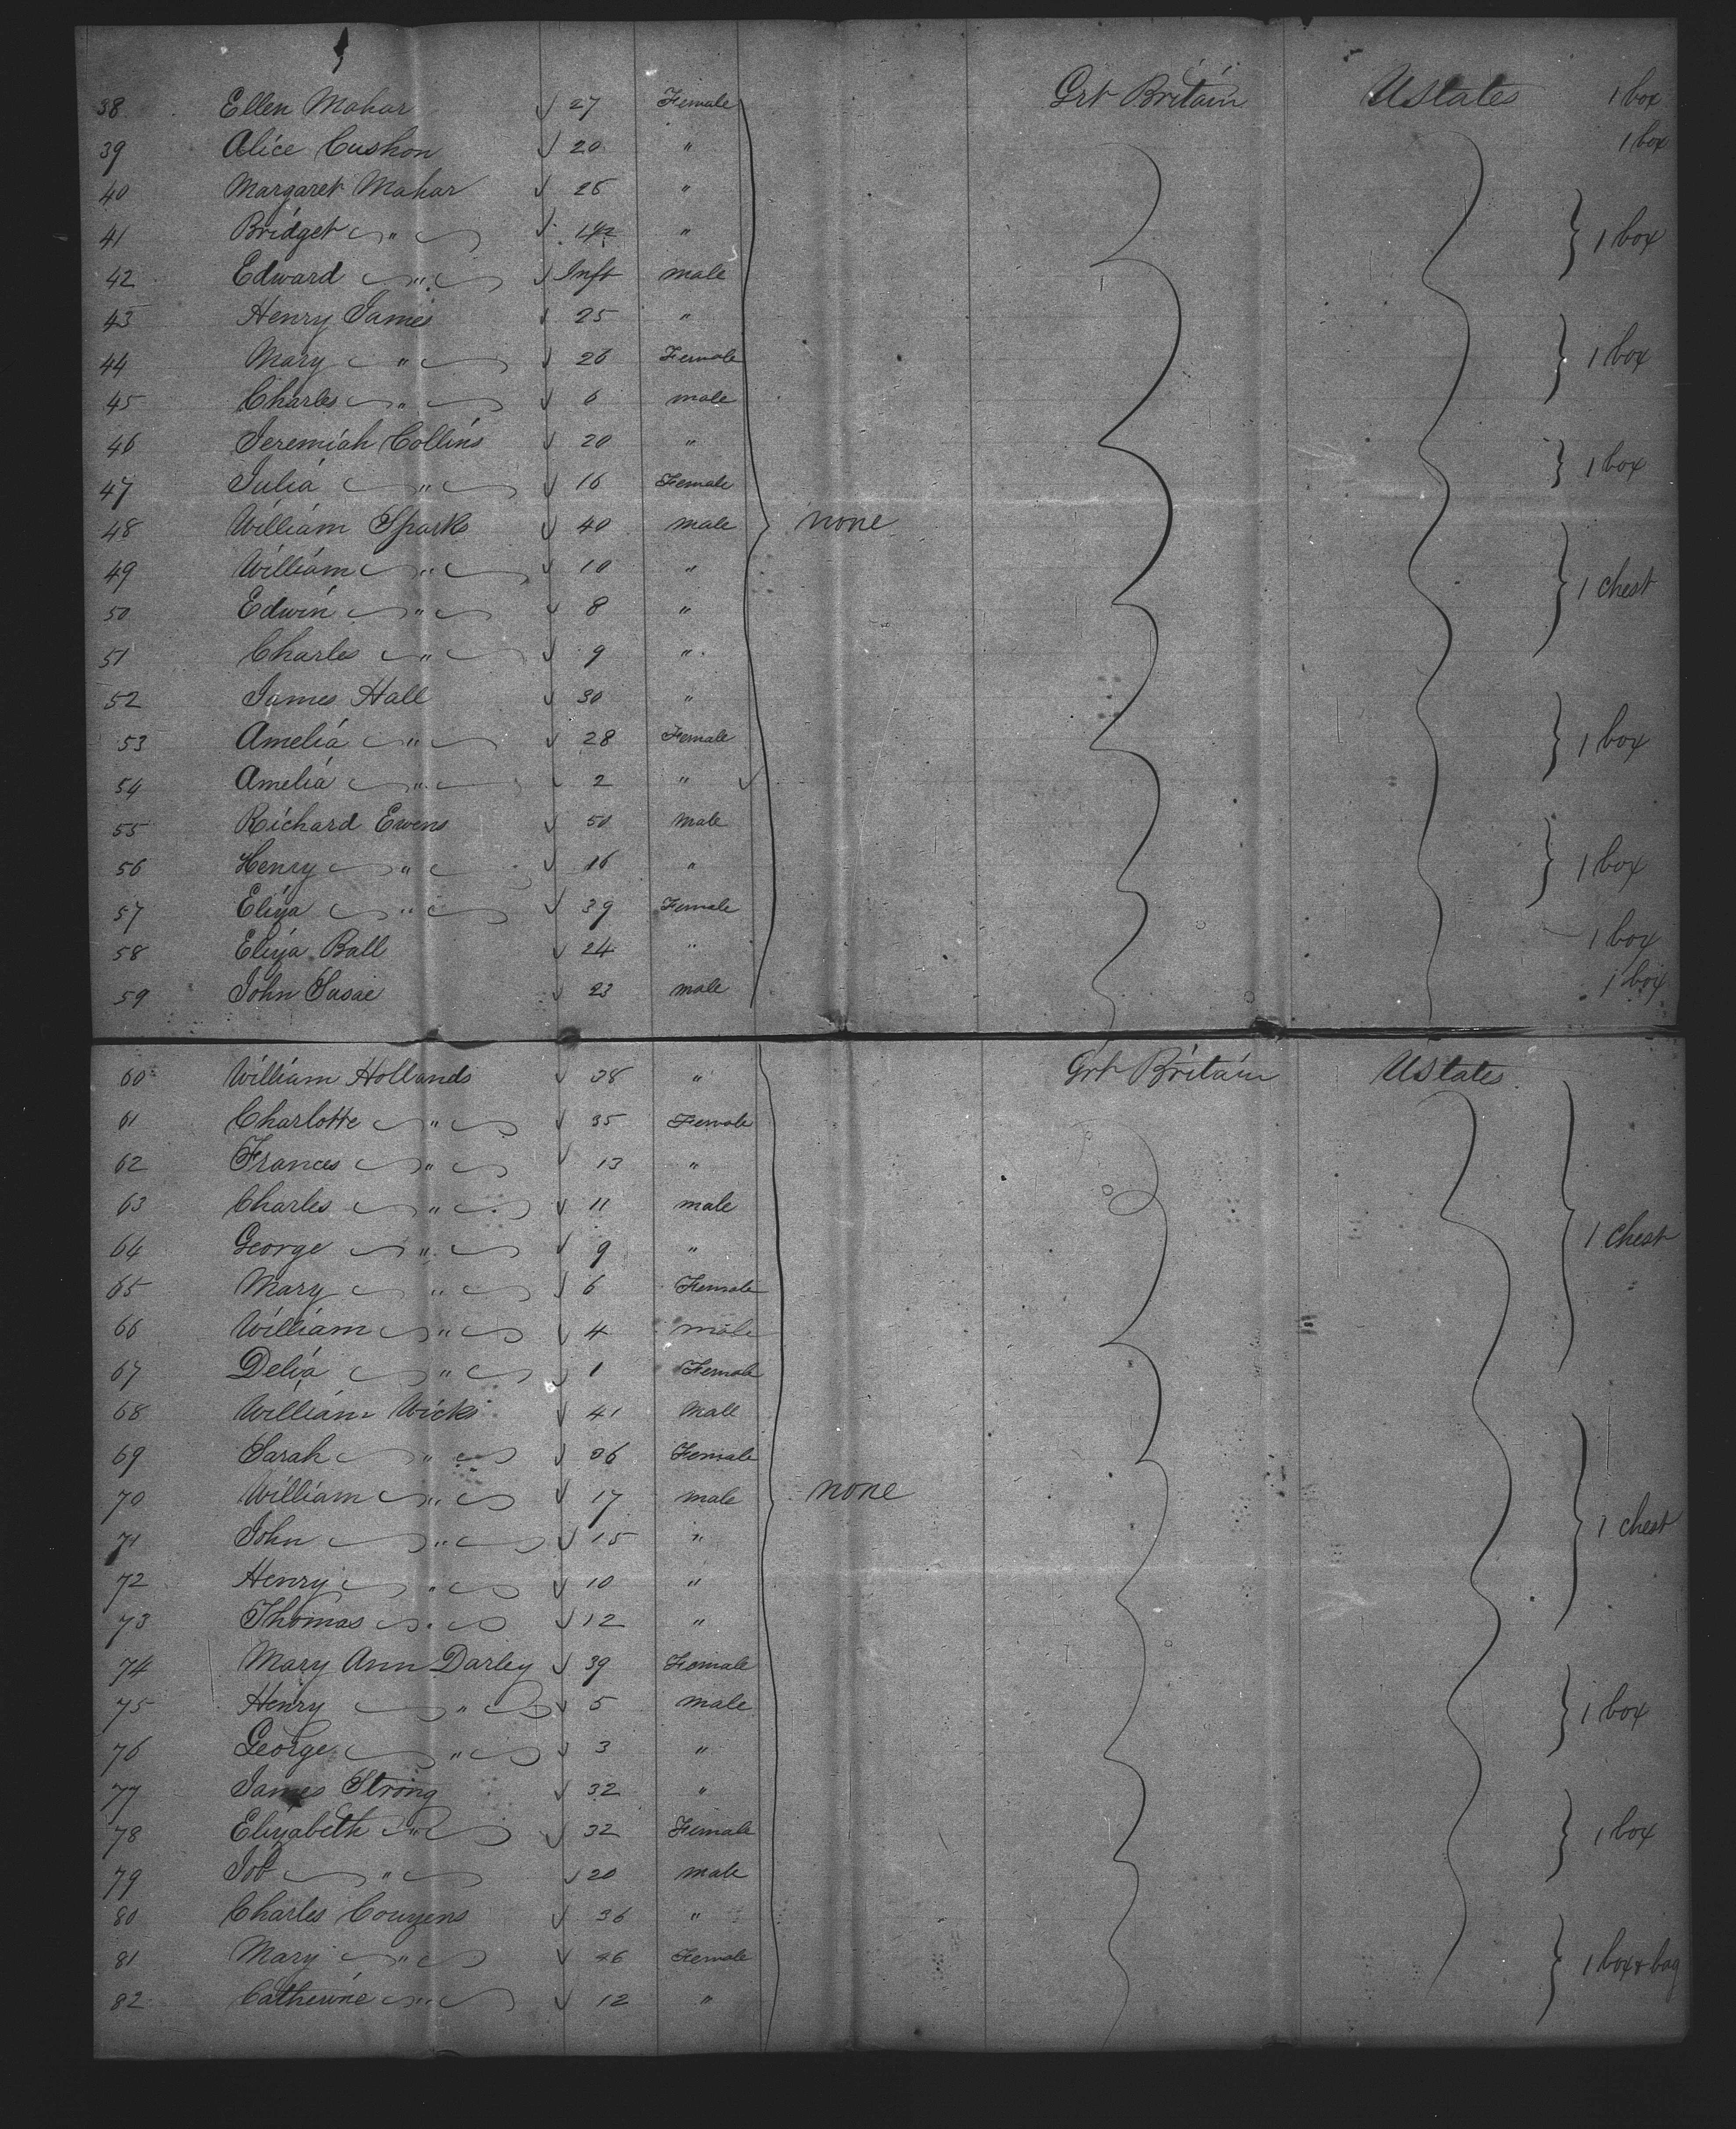 38 Ellen Mahar 27 Female Grt Britain Ustates 1 box
39 Alice Cushon 20 " 1 box
40 Margaret Mahar 26 "
41 Bridget " " 1 box
42 Edward " Inft male
43 Henry James 25 "
44 Mary " 26 Female 1 box
45 Charles " 6 male
46 Jeremiah Collins 20 "
47 Julia " 16 Female 1 box
48 William Sparks 40 male none
49 William " 10 "
50 Edwin " 8 " 1 chest
51 Charles " 9 "
52 James Hall 30 "
53 Amelia " 28 Female 1 box
54 Amelia " 2 "
55 Richard Ewens 50 male
56 Henry " 16 " 1 box
57 Eliza " 39 Female
58 Eliza Ball 24 " 1 box
59 John 23 male 1 box
60 William Hollands 38 " Grt Britain Ustates
61 Charlotte " 35 Female
62 Frances " 13 "
63 Charles " 11 male
64 George " 9 " 1 chest
65 Mary " 6 Female
66 William " 4 male
67 Delia " 1 Female
68 William Wicks 41 Male
69 Sarah " 36 Female
70 William " 17 male none
71 John " 15 " 1 chest
72 Henry " 10 "
73 Thomas " 12 "
74 Mary Ann Darley 39 Female
75 Henry " 5 male 1 box
76 George " 3 "
77 James Strong 32 "
78 Elizabeth " 32 Female 1 box
79 Job " 20 male
80 Charles Couzens 36 "
81 Mary " 46 Female 1 box & bag
82 Catherine " 12 "